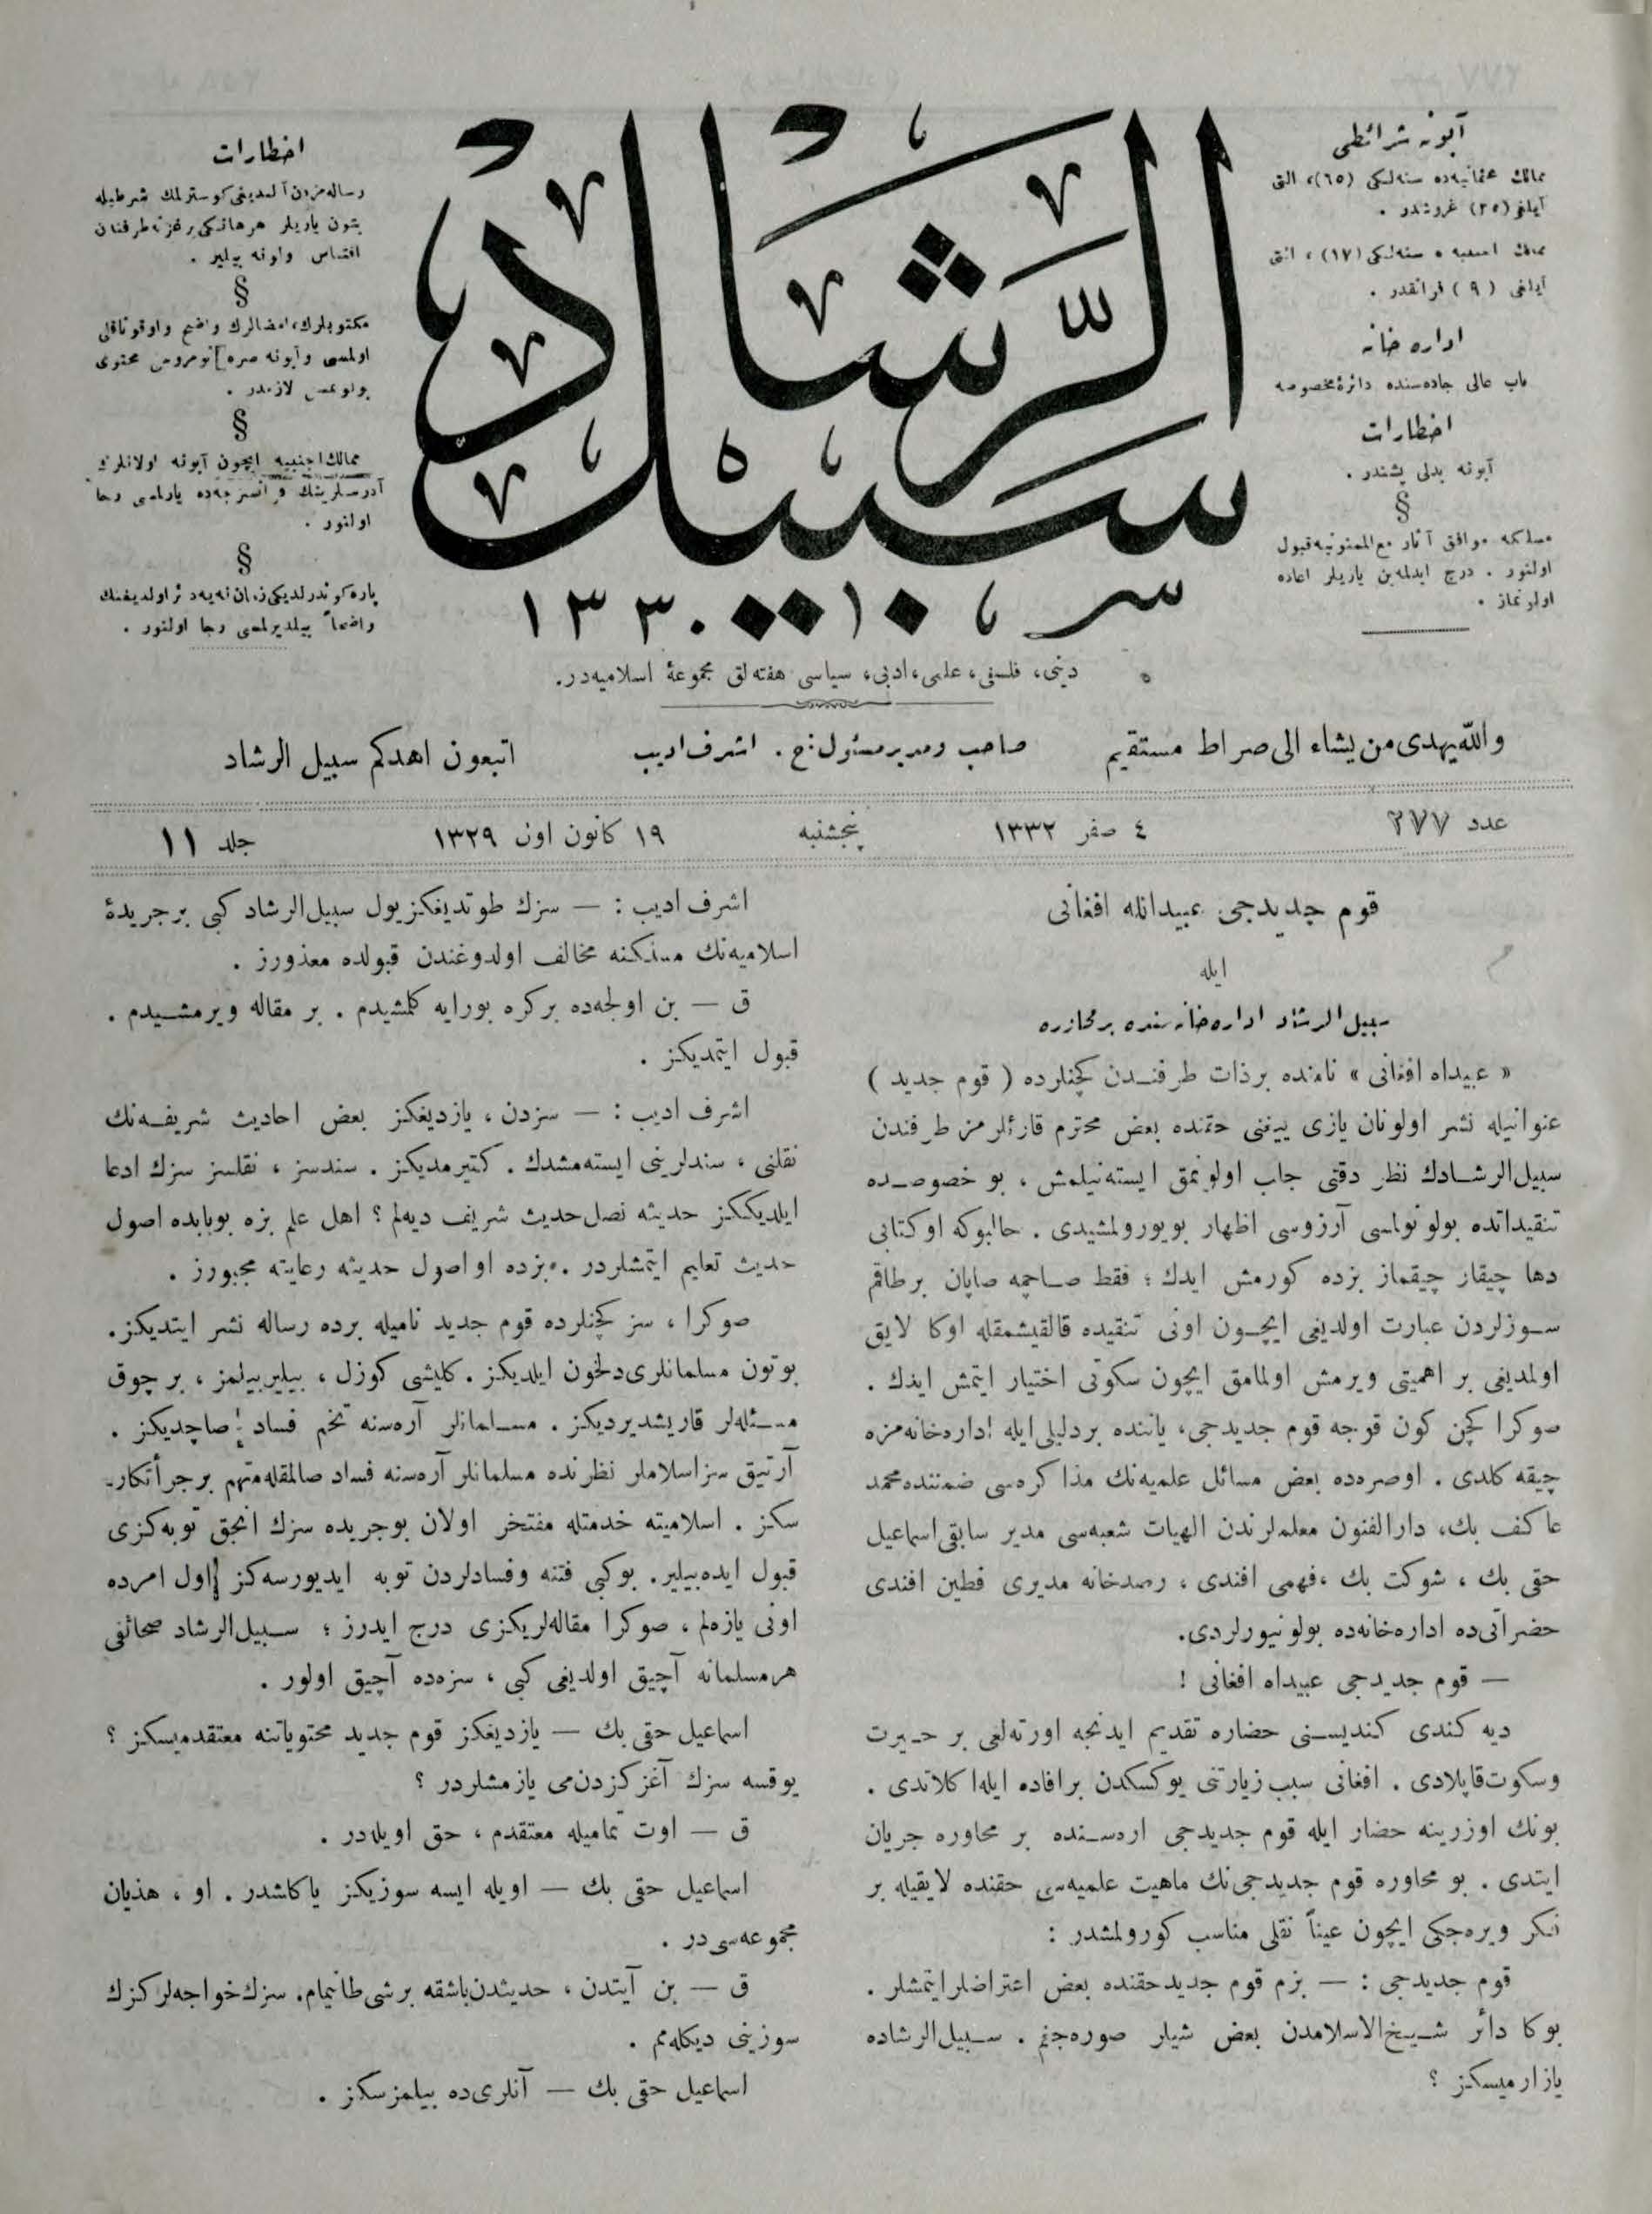 آبونه شرائطی
ممالك عثمانیه‌ده سنه‌لکی (٦٥)، التی
آیلغی (٣٥) غروشدر .
ممالك اجنبیه‌ده سنه‌لکی (١٧) ، التی
آیلغی ( ٩ ) فرانقدر .
اداره خانه
باب عالی جاده‌سنده دائرهٔ مخصوصه
اخطارات
آبونه بدلی پشیندر .
§
مسلکمه موافق آثار مع‌الممنونیه قبول
اولنور . درج ایدلمه‌ین یازیلر اعاده
اولونماز .
سبیل الرشاد
١٣٣٠
اخطارات
رساله‌مزدن آلندیغی کوسترلمك شرطیله
بتون یازیلر هرهانکی بر غزته طرفندن
اقتباس اولونه بیلیر .
§
مکتوبلرك، امضالرك واضح و اوقوناقلی
اولمسی و آبونه صره نومروسنی محتوی
بولونمسی لازمدر .
§
ممالك اجنبیه ایچون آبونه اولانلرك
آدرسلرینك فرانسزجه‌ده یازلمسی رجا
اولنور .
§
پاره کوندرلدیکی زمان نه‌یه‌دائر اولدیغنك
واضحاً بیلدیرلمسی رجا اولنور .
دینی، فلسفی، علمی، ادبی، سیاسی هفته‌لق مجموعهٔ اسلامیه‌در.
والله یهدی من یشاء الی صراط مستقیم
صاحب ومدیر مسئول : ح . اشرف ادیب
اتبعون اهدکم سبیل الرشاد
عدد ٢٧٧
٤ صفر ١٣٣٢
پنجشنبه
١٩ کانون اول ١٣٢٩
جلد ١١
قوم جدیدجی عبیدالله افغانی
ایله
سبیل الرشاد اداره‌خانه‌سنده بر محاوره
« عبیدالله افغانی » نامنده بر ذات طرفنــدن کچنلرده ( قوم جدید )
عنوانیله نشر اولونان یازی ییغنی حقنده بعض محترم قارئلرمز طرفندن
سبیل‌الرشــادك نظر دقتی جلب اولونمق ایسته‌نیلمش ، بو خصوصـده
تنقیداتده بولونولمسی آرزوسی اظهار بویورولمشیدی . حالبوکه او کتابی
دها چیقار چیقماز بزده کورمش ایدك ؛ فقط صـاچمه صاپان بر طاقم
سـوزلردن عبارت اولدیغی ایچـون اونی تنقیده قالقیشمقله اوکا لایق
اولمدیغی بر اهمیتی ویرمش اولمامق ایچون سکوتی اختیار ایتمش ایدك .
صوکرا کچن کون قوجه قوم جدیدجی، یاننده بردلیلی ایله اداره‌خانه‌مزه
چیقه کلدی . اوصره‌ده بعض مسائل علمیه‌نك مذاکره‌سی ضمننده محمد
عاکف بك، دارالفنون معلملرندن الهیات شعبه‌سی مدیر سابقی اسماعیل
حقی بك ، شوکت بك ،فهمی افندی ، رصدخانه مدیری فطین افندی
حضراتی‌ده اداره‌خانه‌ده بولونیورلردی.
— قوم جدیدجی عبیدالله افغانی !
دیه کندی کندیســنی حضاره تقدیم ایدنجه اورته‌لغی بر حـیرت
وسکوت قاپلادی . افغانی سبب زیارتنی یوکسکدن بر افاده ایله اکلاتدی .
بونك اوزرینه حضار ایله قوم جدیدجی اره‌ســنده بر محاوره جریان
ایتدی . بو محاوره قوم جدیدجی‌نك ماهیت علمیه‌سی حقنده لایقیله بر
فکر ویره‌جکی ایچون عیناً نقلی مناسب کورولمشدر :
قوم جدیدجی : — بزم قوم جدید حقنده بعض اعتراضلر ایتمشلر .
بوکا دائر شــیخ‌الاسلامدن بعض شیلر صوره‌جغم . سـبیل‌الرشاده
یازارمیسکز ؟
اشرف ادیب : — سزك طوتدیغکز یول سبیل‌الرشاد کبی بر جریدهٔ
اسلامیه‌نك مسلکنه مخالف اولدوغندن قبولده معذورز .
ق — بن اولجه‌ده برکره بورایه کلمشیدم . بر مقاله ویرمشـیدم .
قبول ایتمدیکز .
اشرف ادیب : — سزدن ، یازدیغکز بعض احادیث شریفـه‌نك
نقلنی ، سندلرینی ایسته‌مشدك . کتیرمدیکز . سندسز ، نقلسز سزك ادعا
ایلدیککز حدیثه نصل حدیث شریف دیه‌لم ؟ اهل علم بزه بوبابده اصول
حدیث تعلیم ایتمشلردر . بزده او اصول حدیثه رعایته مجبورز .
صوکرا ، سز کچنلرده قوم جدید نامیله برده رساله نشر ایتدیکز.
بوتون مسلمانلری دلخون ایلدیکز . کلیشی کوزل ، بیلیر بیلمز ، بر چوق
مسـئله‌لر قاریشدیردیکز . مسـلمانلر آره‌سنه تخم فساد صاچدیکز .
آرتیق سز اسلاملر نظرنده مسلمانلر آره‌سنه فساد صالمقله متهم بر جرأتکار-
سکز . اسلامیته خدمتله مفتخر اولان بوجریده سزك انجق توبه‌کزی
قبول ایده‌بیلیر. بوکبی فتنه وفسادلردن توبه ایدیورسه‌کز اول امرده
اونی یازه‌لم ، صوکرا مقاله‌لریکزی درج ایدرز ؛ سـبیل‌الرشاد صحائفی
هر مسلمانه آچیق اولدیغی کبی ، سزه‌ده آچیق اولور .
اسماعیل حقی بك — یازدیغکز قوم جدید محتویاتنه معتقدمیسکز ؟
یوقسه سزك آغزکزدن‌می یازمشلردر ؟
ق — اوت تمامیله معتقدم ، حق اویله‌در .
اسماعیل حقی بك — اویله ایسه سوزیکز یاکلشدر . او ، هذیان
مجموعه‌سی‌در .
ق — بن آیتدن ، حدیثدن باشقه بر شی طانیمام. سزك خواجه‌لرکزك
سوزینی دیکله‌مم .
اسماعیل حقی بك — آنلری‌ده بیلمزسکز .